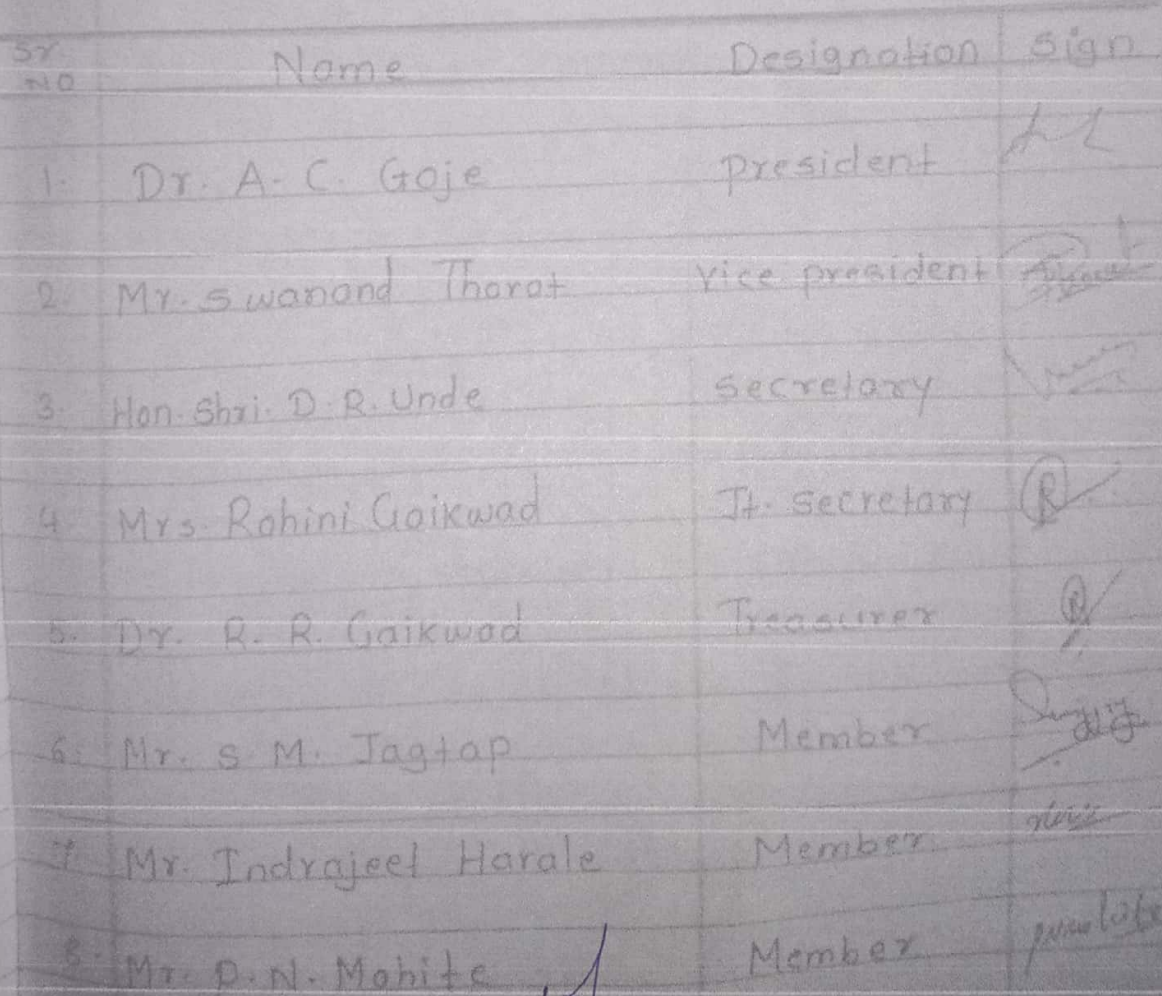 Sr. NO Name Designation Sign
1. Dr. A. C. Goje president
2. Mr. Swanand Thorat vice president
3. Hon. Shri. D. R. Unde secretary
4. Mrs. Rohini Gaikwad Jt. secretary
5. Dr. R. R. Gaikwad Treasurer
6. Mr. S. M. Jagtap Member
7. Mr. Indrajeet Harale Member
8. Mr. D. N. Mohite Member